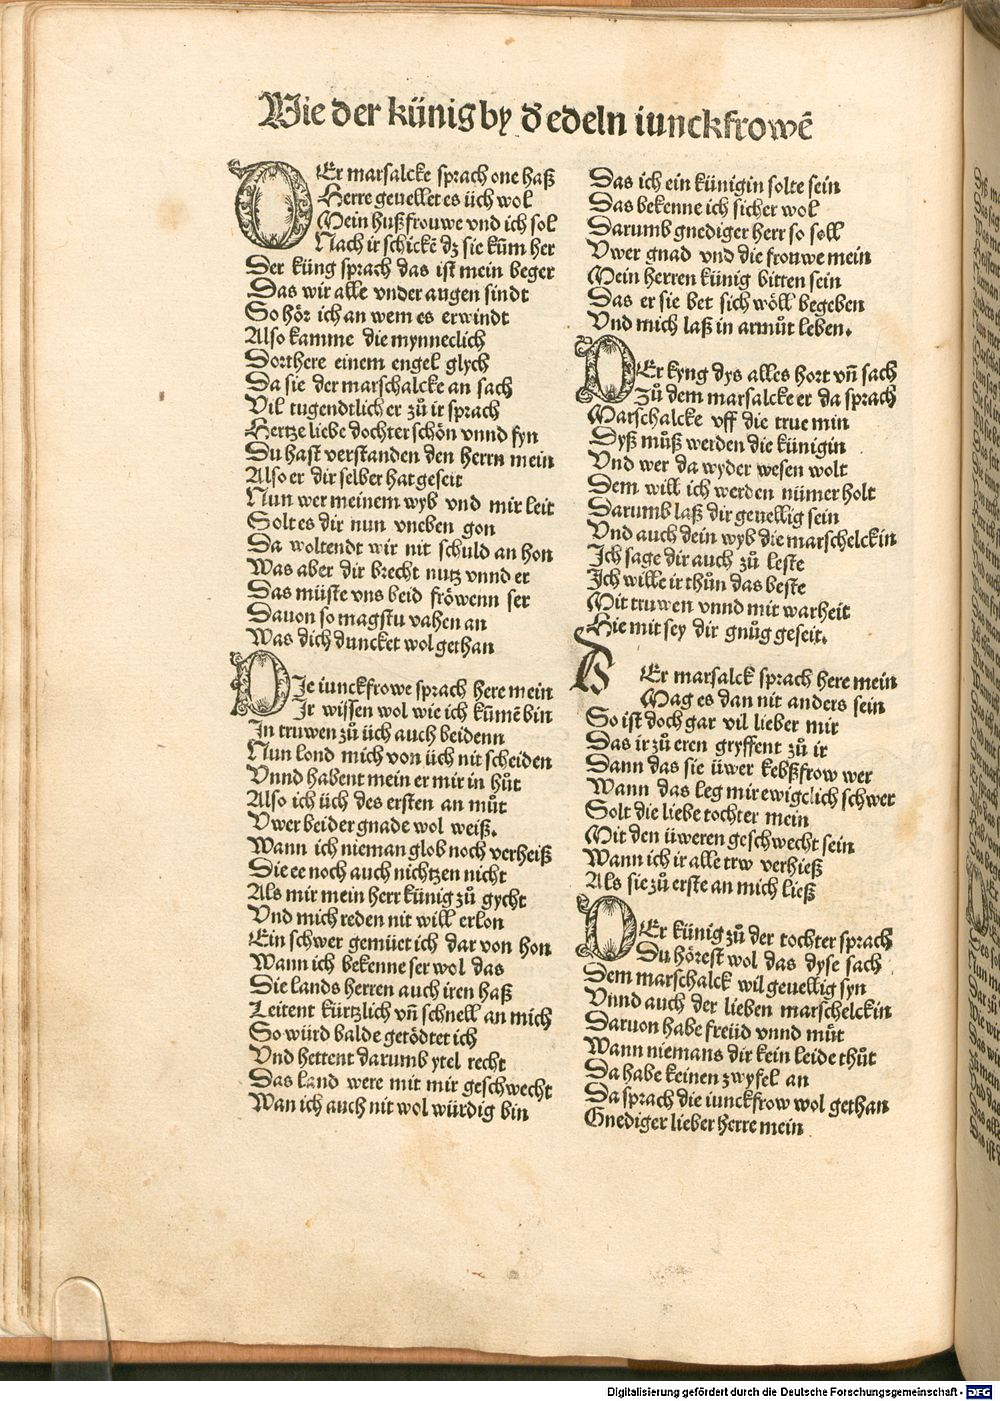 Wie der künig by d̄ edeln iunckfrowē
DEr marsalcke sprach one haß
Herre geuellet es üch wol
Mein hußfrouwe vnd ich sol
Nach ir schickē dz sie kūm her
Der küng sprach das ist mein beger
Das wir alle vnder augen sindt
So hör ich an wem es erwindt
Also kamme die mynneclich
Dorthere einem engel glych
Da sie der marschalcke an sach
Vil tugendtlich er zů ir sprach
Hertze liebe dochter schön vnnd fyn
Du hast verstanden den herrn mein
Also er dir selber hat geseit
Nun wer meinem wyb vnd mir leit
Solt es dir nun vneben gon
Da woltendt wir nit schuld an hon
Was aber dir brecht nutz vnnd er
Das müste vns beid fröwenn ser
Dauon so magstu vahen an
Was dich duncket wol gethan
DJe iunckfrowe sprach here mein
Jr wissen wol wie ich kūmē bin
Jn truwen zů üch auch beidenn
Nun lond mich von üch nit scheiden
Vnnd habent mein er mir in hůt
Also ich üch des ersten an můt
Vwer beider gnade wol weiß.
Wann ich nieman glob noch verheiß
Die ee noch auch nichtzen nicht
Als mir mein herr künig zů gycht
Vnd mich reden nit will erlon
Ein schwer gemüet ich dar von hon
Wann ich bekenne ser wol das
Die lands herren auch iren haß
Leitent kürtzlich vn̄ schnell an mich
So würd balde getödtet ich
Vnd hettent darumb ytel recht
Das land were mit mir geschwecht
Wan ich auch nit wol würdig bin
Das ich ein künigin solte sein
Das bekenne ich sicher wol
Darumb gnediger herr so soll
Vwer gnad vnd die frouwe mein
Mein herren künig bitten sein
Das er sie bet sich wöll begeben
Vnd mich laß in armůt leben.
DEr kyng dys alles hort vn̄ sach
Zů dem marsalcke er da sprach
Marschalcke vff die true min
Dyß můß werden die künigin
Vnd wer da wyder wesen wolt
Dem will ich werden nümer holt
Darumb laß dir geuellig sein
Vnd auch dein wyb die marschelckin
Jch sage dir auch zů leste
Jch wille ir thůn das beste
Mit truwen vnnd mit warheit
Hie mit sey dir gnůg geseit.
Er marsalck sprach here mein
Mag es dan nit anders sein
So ist doch gar vil lieber mir
Das ir zů eren gryffent zů ir
Dann das sie üwer kebßfrow wer
Wann das leg mir ewigclich schwer
Solt die liebe tochter mein
Mit den üweren geschwecht sein
Wann ich ir alle trw verhieß
Als sie zů erste an mich ließ
DEr künig zů der tochter sprach
Du hörest wol das dyse sach
Dem marschalck wil geuellig syn
Vnnd auch der lieben marschelckin
Daruon habe freüd vnnd můt
Wann niemans dir kein leide thůt
Da habe keinen zwyfel an
Da sprach die iunckfrow wol gethan
Gnediger lieber herre mein
Digitalisierung gefördert durch die Deutsche Forschungsgemeinschaft - DFG